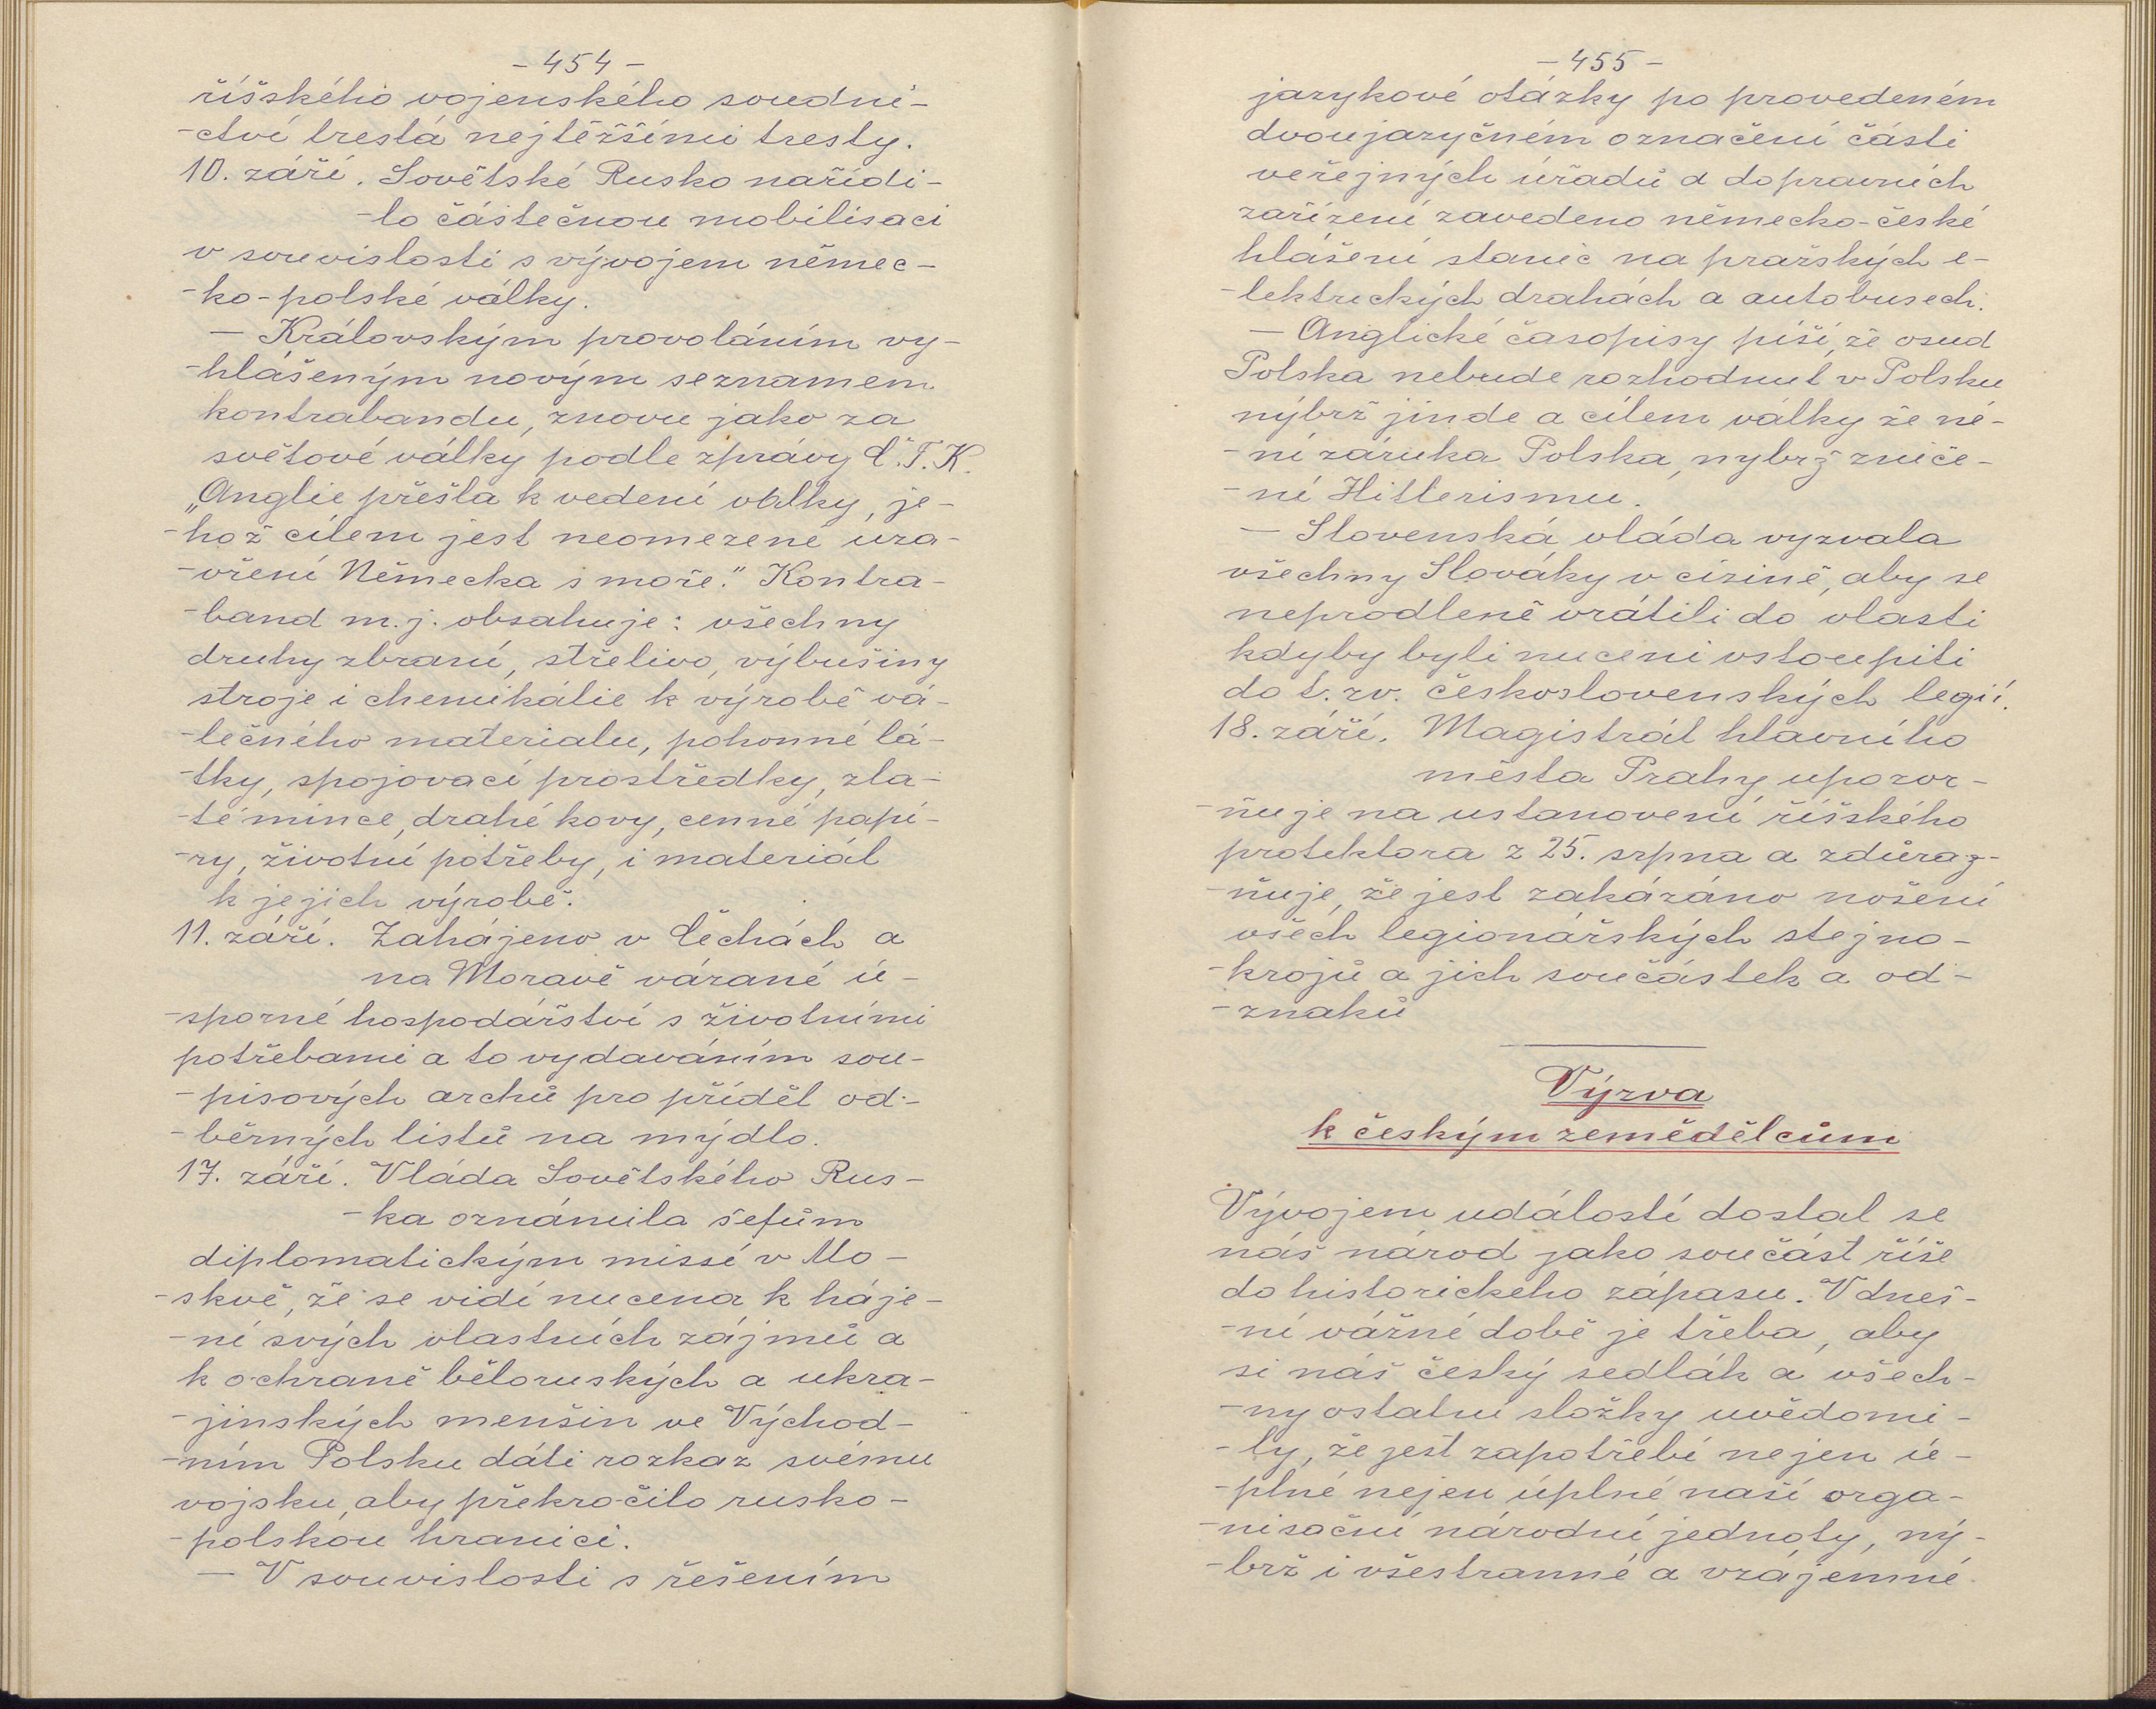 - 454 -
říšského vojenského soudni-
-ctví trestá nejtěžšími tresty.
10. září. Sovětské Rusko nařídi-
-lo částečnou mobilisaci
v souvislosti s vývojem němec-
-ko-polské války.
- Královským provoláním vy-
-hlášeným novým seznamem
kontrabandu, znovu jako za
světové války podle zprávy Č.T.K.
„Anglie přešla k vedení války, je-
-hož cílem jest neomezené uza-
-vření Německa s moře." Kontra-
-band m.j. obsahuje: všechny
druhy zbraní, střelivo, výbušiny
stroje i chemikálie k výrobě vá-
-lečného materialu, pohonné lá-
-tky, spojovací prostředky, zla-
-té mince, drahé kovy, cenné papí-
-ry, životní potřeby, i materiál
k jejich výrobě.
11. září. Zahájeno v Čechách a
na Moravě vázané ú-
-sporné hospodářství s životními
potřebami a to vydáváním sou-
-pisových archů pro příděl od-
-běrných listů na mýdlo.
17. září. Vláda Sovětského Rus-
-ka oznámila šefům
diplomatickým missí v Mo-
-skvě, že se vidí nucena k háje-
-ní svých vlastních zájmů a
k ochraně běloruských a ukra-
-jinských menšin ve Východ-
-ním Polsku dáti rozkaz svému
vojsku, aby překročilo rusko-
-polskou hranici.
- V souvislosti s řešením
- 455 -
jazykové otázky po provedeném
dvoujazyčném označení části
veřejných úřadů a dopravních
zařízení zavedeno německo-české
hlášení stanic na pražských e-
-lektrických drahách a autobusech.
- Anglické časopisy píší, že osud
Polska nebude rozhodnut v Polsku
nýbrž jinde a cílem války že ne-
-ní záruka Polska, nýbrž zniče-
-ní Hitlerismu.
- Slovenská vláda vyzvala
všechny Slováky v cizině, aby se
neprodleně vrátili do vlasti
kdyby byli nuceni vstoupiti
do t. zv. československých legií.
18. září. Magistrát hlavního
města Prahy upozor-
-ňuje na ustanovení říšského
protektora z 25. srpna a zdůraz-
-ňuje, že jest zakázáno nošení
všech legionářských stejno-
-krojů a jich součástek a od-
-znaků
Výzva
k českým zemědělcům
Vývojem událostí dostal se
náš národ jako součást říše
do historického zápasu. V dneš-
-ní vážné době je třeba, aby
si náš český sedlák a všech-
-ny ostatní složky uvědomi-
-ly, že jest zapotřebí nejen ú-
-plné nejen úplné naší orga-
-nisační národní jednoty, ný-
-brž i všestranné a vzájemné